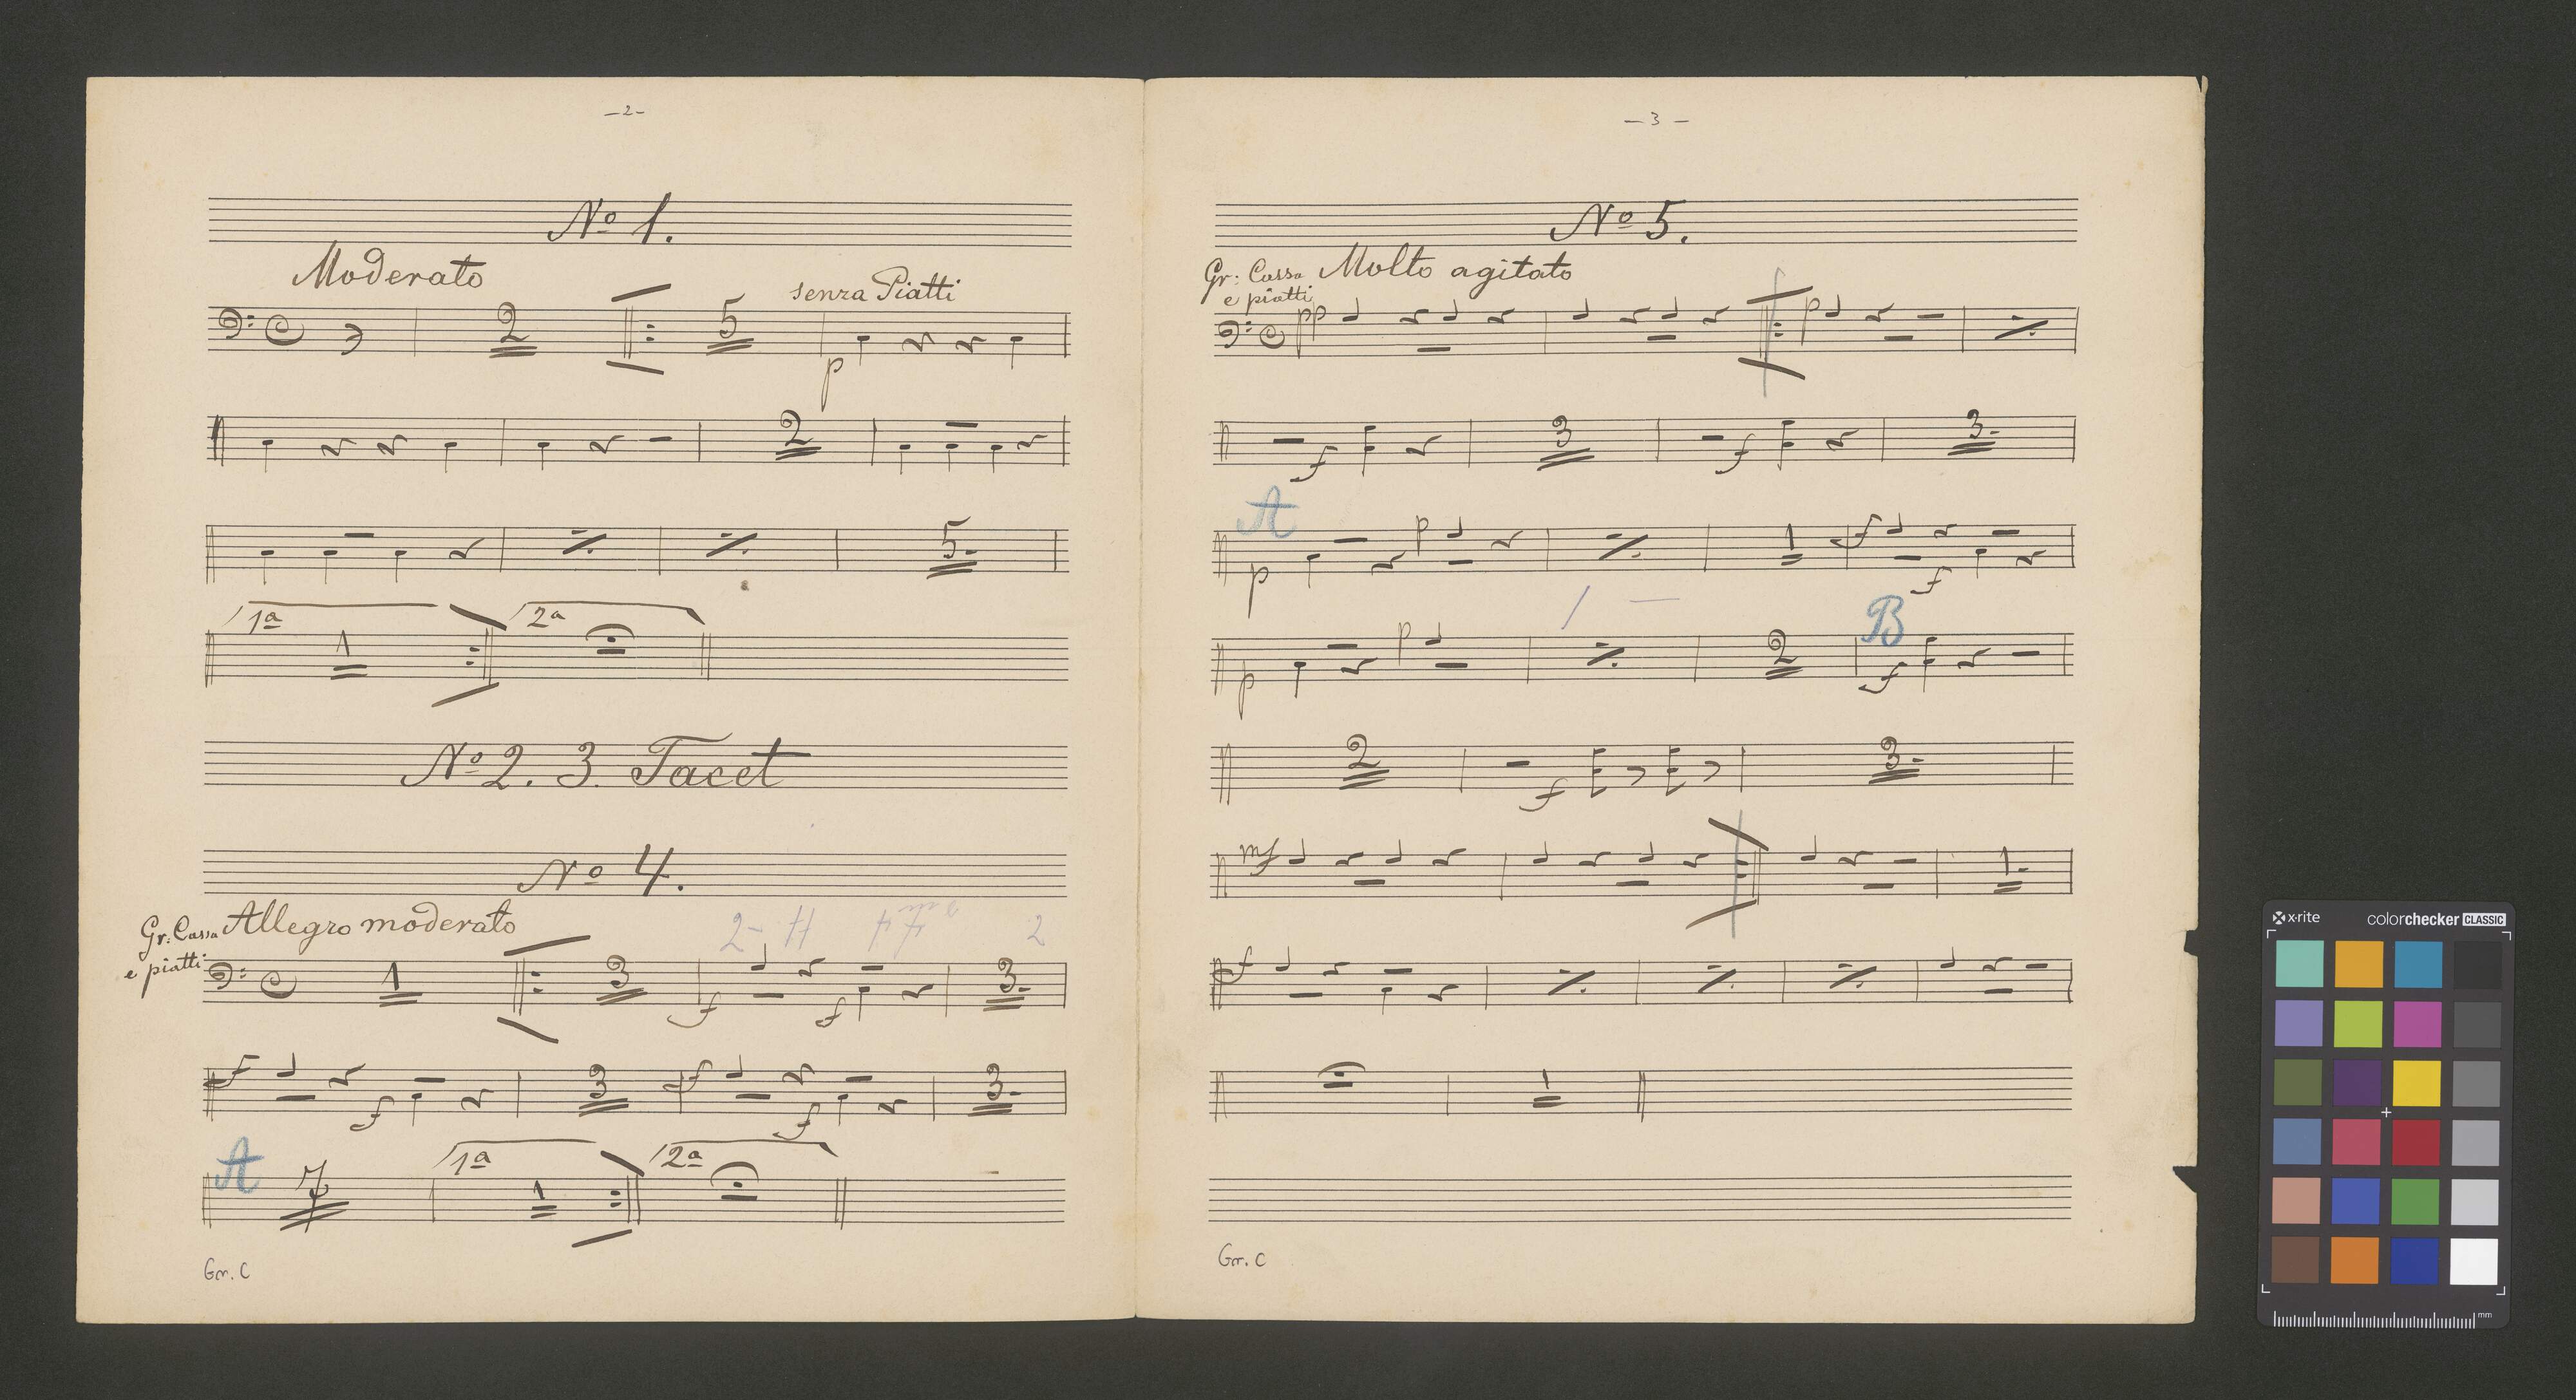 —2—
Nº 1.
Moderato
senza Piatti
2 5
p
2
5.
1ª 2ª
1
Nº 2. 3. Tacet
Nº 4.
Gr: Cassa Allegro moderato
e piatti
2- H 2
1 3 f f 3.
f f 3 f f 3.
A 7 1ª 1 2ª
Gr. C
— 3 —
Nº 5.
Gr: Cassa Molto agitato
e piatti
pp p
f 3 f 3.
A
p p 1 f f
B
p p 2 f
2 f 3.
mf 1.
f
1
Gr. C
x-rite colorchecker CLASSIC
mm